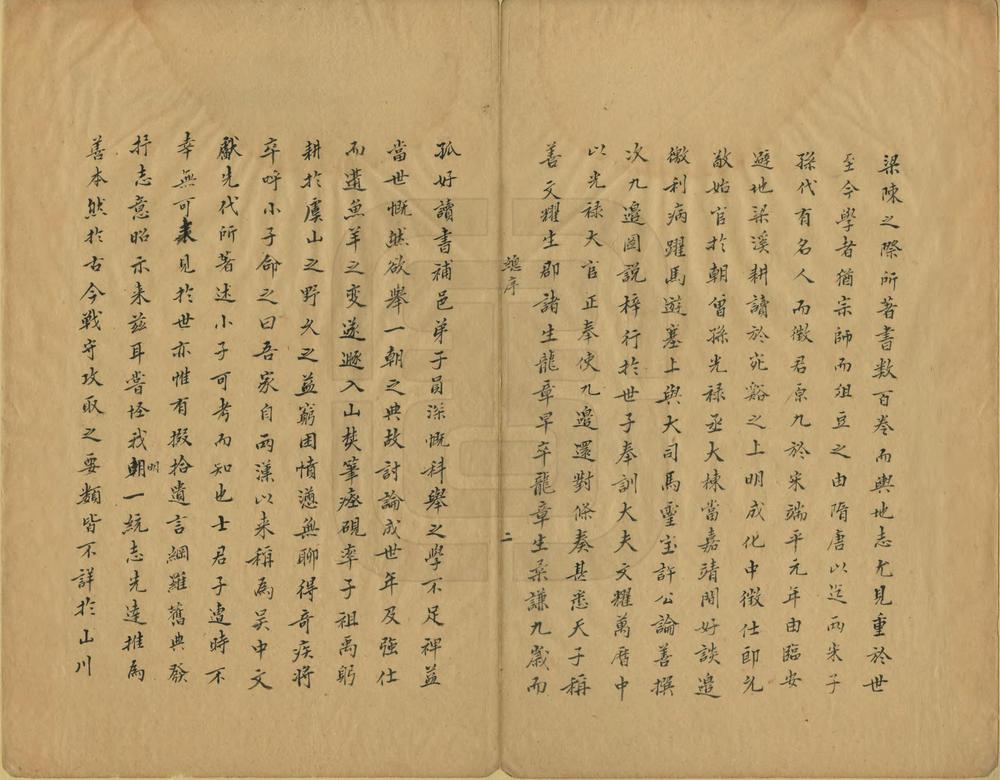 梁陳之際所著書數百卷而輿地志尤見重於世
至今學者猶宗師而俎豆之由隋唐以迄兩宋子
孫代有名人而徵君原九於宋端平元年由臨安
避地梁溪耕讀於宛谿之上明成化中徵仕郎允
敬始官於朝曾孫光祿丞大棟當嘉靖間好談邊
徼利病躍馬遊塞上與大司馬靈寶許公論善撰
次九邊圖說梓行於世子奉訓大夫文耀萬曆中
以光祿大官正奉使九邊還對條奏甚悉天子稱
善文耀生郡諸生龍章早卒龍章生柔謙九歲而
總序
二
孤好讀書補邑弟子員深慨科舉之學不足裨益
當世慨然欲舉一朝之典故討論成世年及強仕
而遘魚羊之變遂遯入山焚筆瘞硯率子祖禹躬
耕於虞山之野久之益窮困憤懣無聊得奇疾將
卒呼小子命之曰吾家自兩漢以來稱為吳中文
獻先代所著述小子可考而知也士君子遭時不
幸無可表見於世亦惟有掇拾遺言網羅舊典發
抒志意昭示來茲耳嘗怪我明朝一統志先達推為
善本然於古今戰守攻取之要類皆不詳於山川